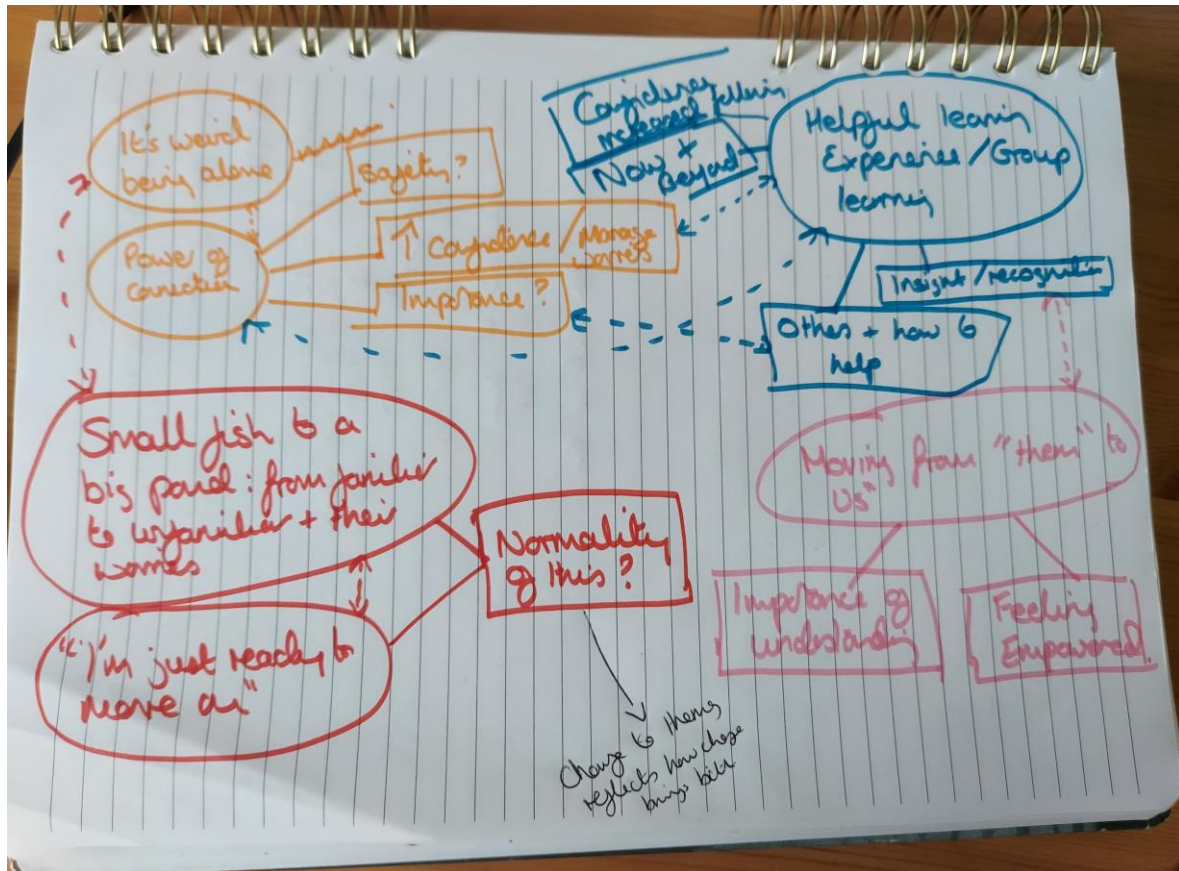 It's weird
being alone
Safety?
Power of
connection
↑ Confidence / Manage
worries
Importance?
Confidence
increased following
Now +
Beyond
Helpful learning
Experience/Group
learning
Insight/recognition
Others + how to
help
Small fish to a
big pond: from familiar
to unfamiliar + their
worries
"I'm just ready to
move on"
Normality
of this?
Change to theme
reflects how change
brings
Moving from "them" to
us"
Importance of
understanding
Feeling
Empowered